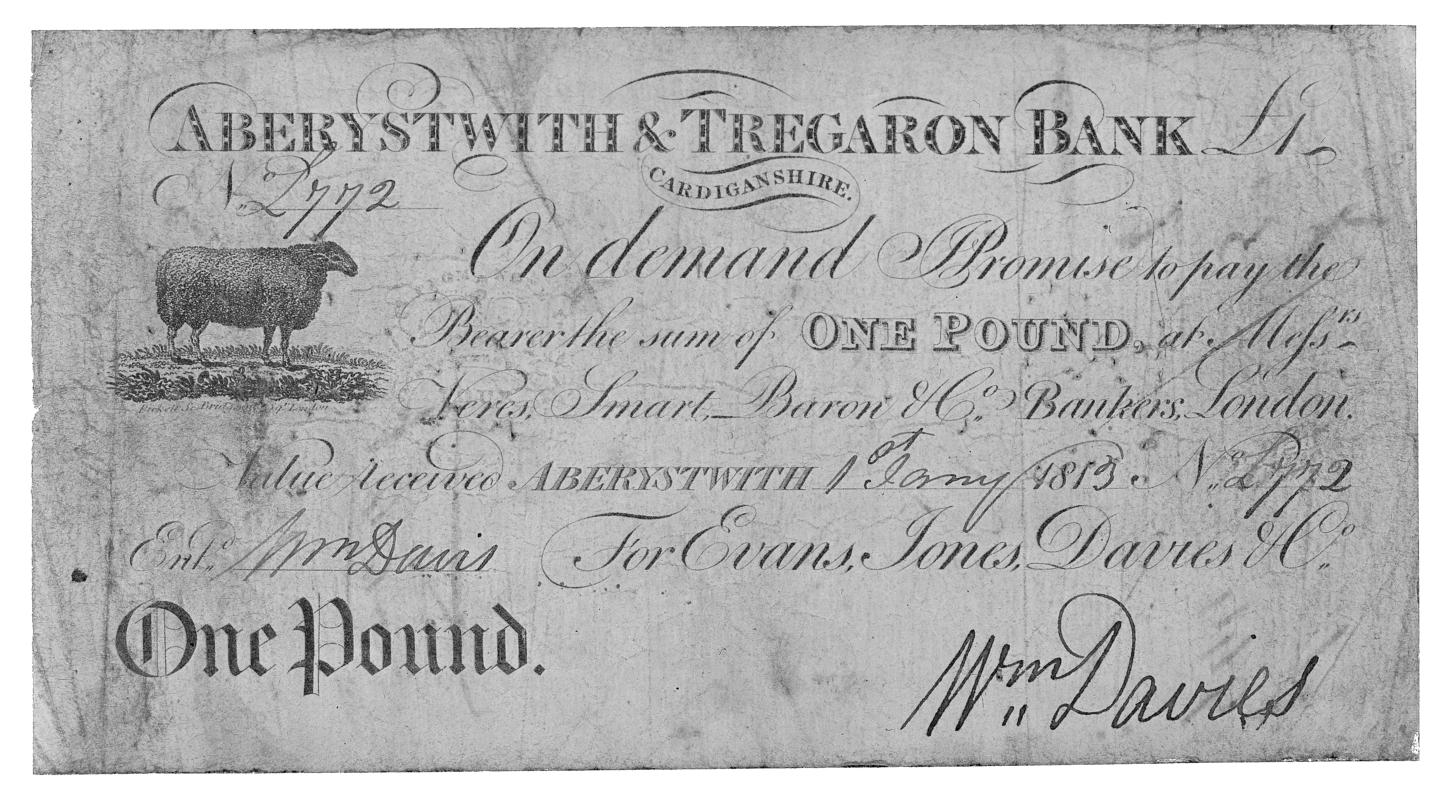 ABERYSTWITH & TREGARON BANK £1
CARDIGANSHIRE.
No. L772
On demand I Promise to pay the
Bearer the sum of ONE POUND, at Messrs
Veres, Smart, Baron & Co. Bankers, London.
Value received ABERYSTWITH 1st Jany 1815 No. L772
Entd. Wm Davis For Evans, Jones, Davies & Co.
One Pound.
Wm Davies